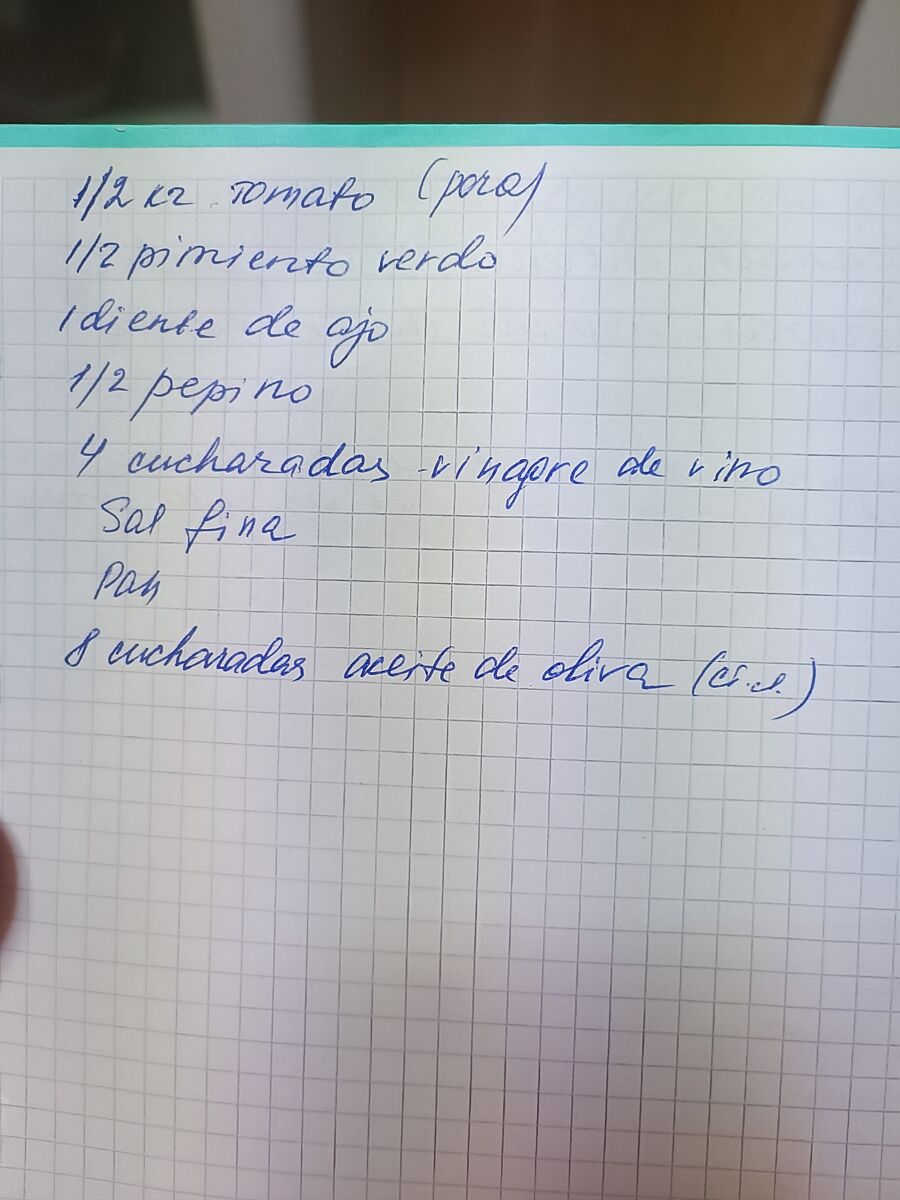 1/2 кг tomato (pera)
1/2 pimiento verdo
1 diente de ajo
1/2 pepino
4 cucharadas vinagre de vino
Sal fina
Pan
8 cucharadas aceite de oliva